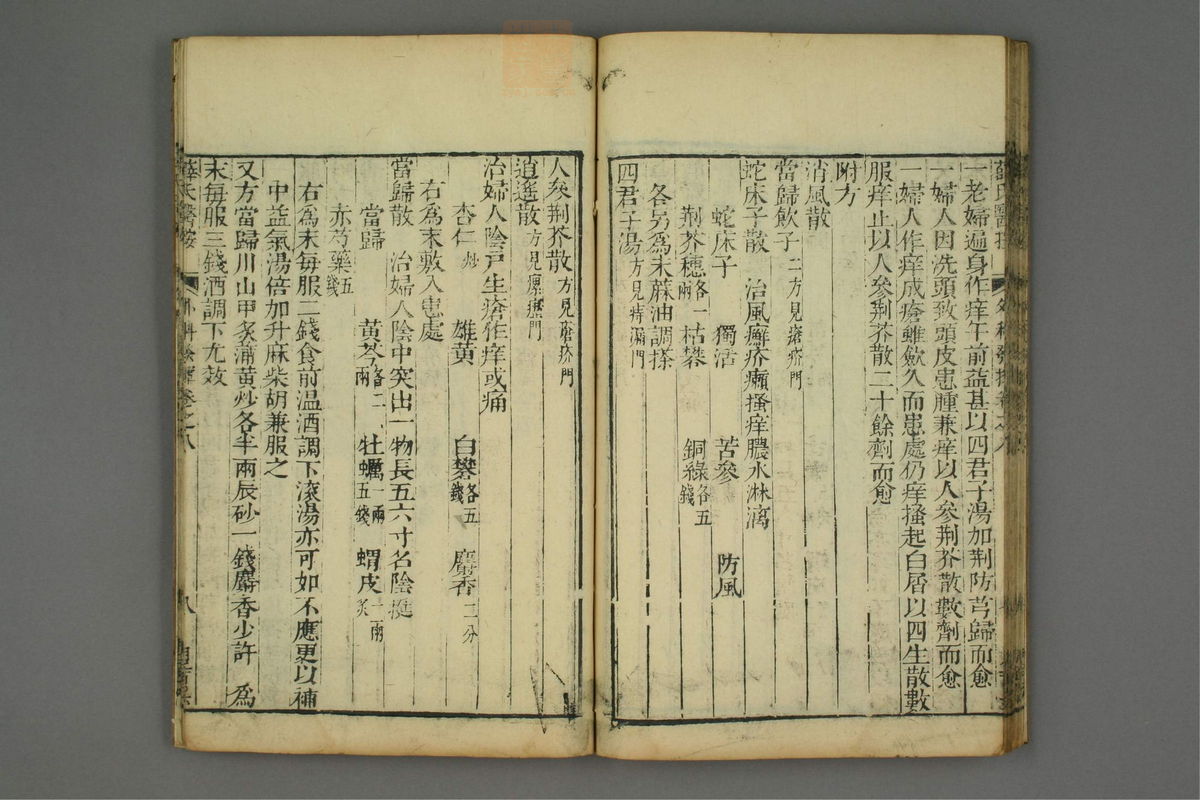 一老婦遍身作痒午前益甚以四君子湯加荆防芎歸而愈
一婦人因洗頭致頭皮患腫兼痒以人參荆芥散數劑而愈
一婦人作痒成瘡雖歛久而患處仍痒搔起白屑以四生散數
服痒止以人參荆芥散二十餘劑而愈
附方
消風散
當歸飲子 二方見瘡疥門
蛇床子散 治風癬疥癩搔痒膿水淋漓
蛇床子 獨活 苦參 防風
荆芥穗各一兩 枯礬 銅綠各五錢
各另爲末蔴油調搽
四君子湯 方見痔漏門
人參荆芥散 方見瘡疥門
逍遙散 方見瘰癧門
治婦人陰戸生瘡作痒或痛
杏仁炒 雄黄 白礬各五錢 麝香二分
右爲末敷入患處
當歸散 治婦人陰中突出一物長五六寸名陰挺
當歸 黄芩各二兩 牡蠣一兩五錢 蝟皮一兩炙
赤芍藥五錢
右爲末每服二錢食前温酒調下滚湯亦可如不應更以補
中益氣湯倍加升麻柴胡兼服之
又方當歸川山甲炙蒲黄炒各半兩辰砂一錢麝香少許爲
末每服三錢酒調下尤效
薛氏醫按 卷之八 八